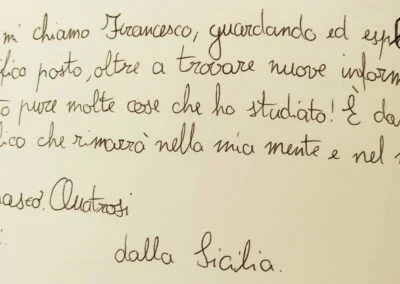 mi chiamo Francesco, guardando ed esp
fico posto, oltre a trovare nuove inform
pure molte cose che ho studiato! È da
ico che rimarrà nella mia mente e nel
asco. Quatrosi
dalla Sicilia.